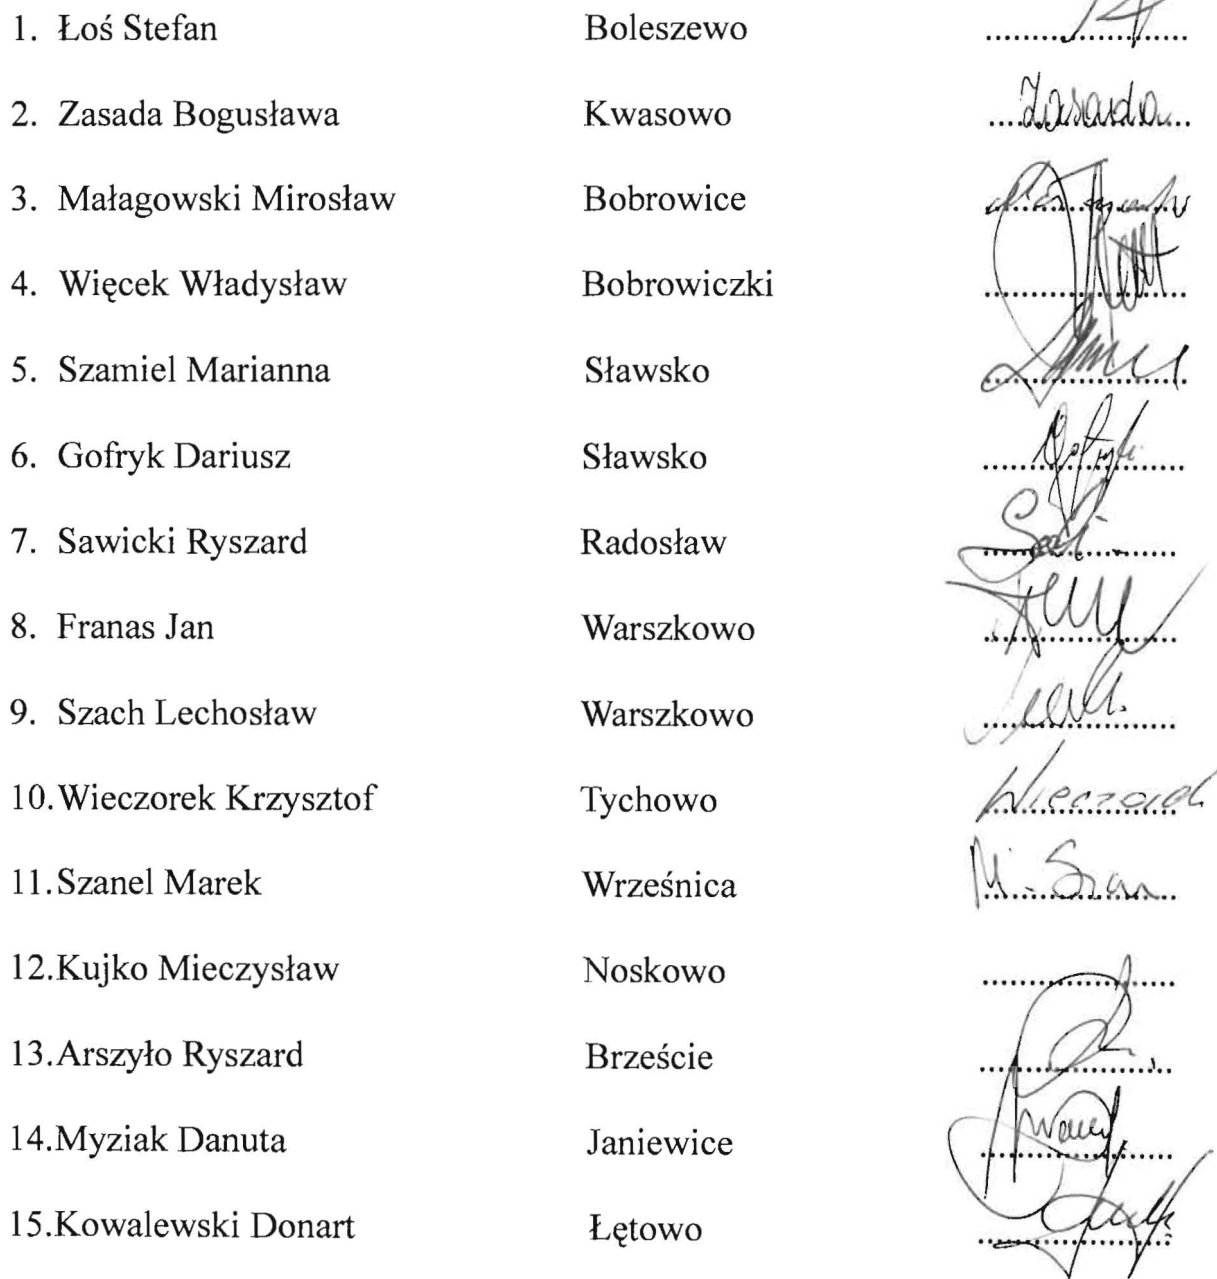 1. Łoś Stefan Boleszewo ....................
2. Zasada Bogusława Kwasowo ....Zasada....
3. Małagowski Mirosław Bobrowice ....................
4. Więcek Władysław Bobrowiczki ....................
5. Szamiel Marianna Sławsko ....................
6. Gofryk Dariusz Sławsko ....................
7. Sawicki Ryszard Radosław ....................
8. Franas Jan Warszkowo ....................
9. Szach Lechosław Warszkowo ....................
10. Wieczorek Krzysztof Tychowo ....................
11. Szanel Marek Wrześnica ....................
12. Kujko Mieczysław Noskowo ....................
13. Arszyło Ryszard Brzeście ....................
14. Myziak Danuta Janiewice ....................
15. Kowalewski Donart Łętowo ....................